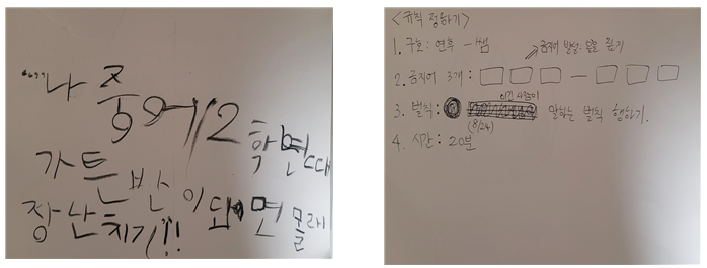 나 중에 2 학년때
가튼 반이 돼면 몰래
장난치기!!
<규칙 정하기>
1. 구호 : 연후 - 쌤
2. 금지어 3개 : □□□ - □□□
이긴 사람이
3. 벌칙 : 말하는 벌칙 행하기.
(8/24)
4. 시간 : 20분